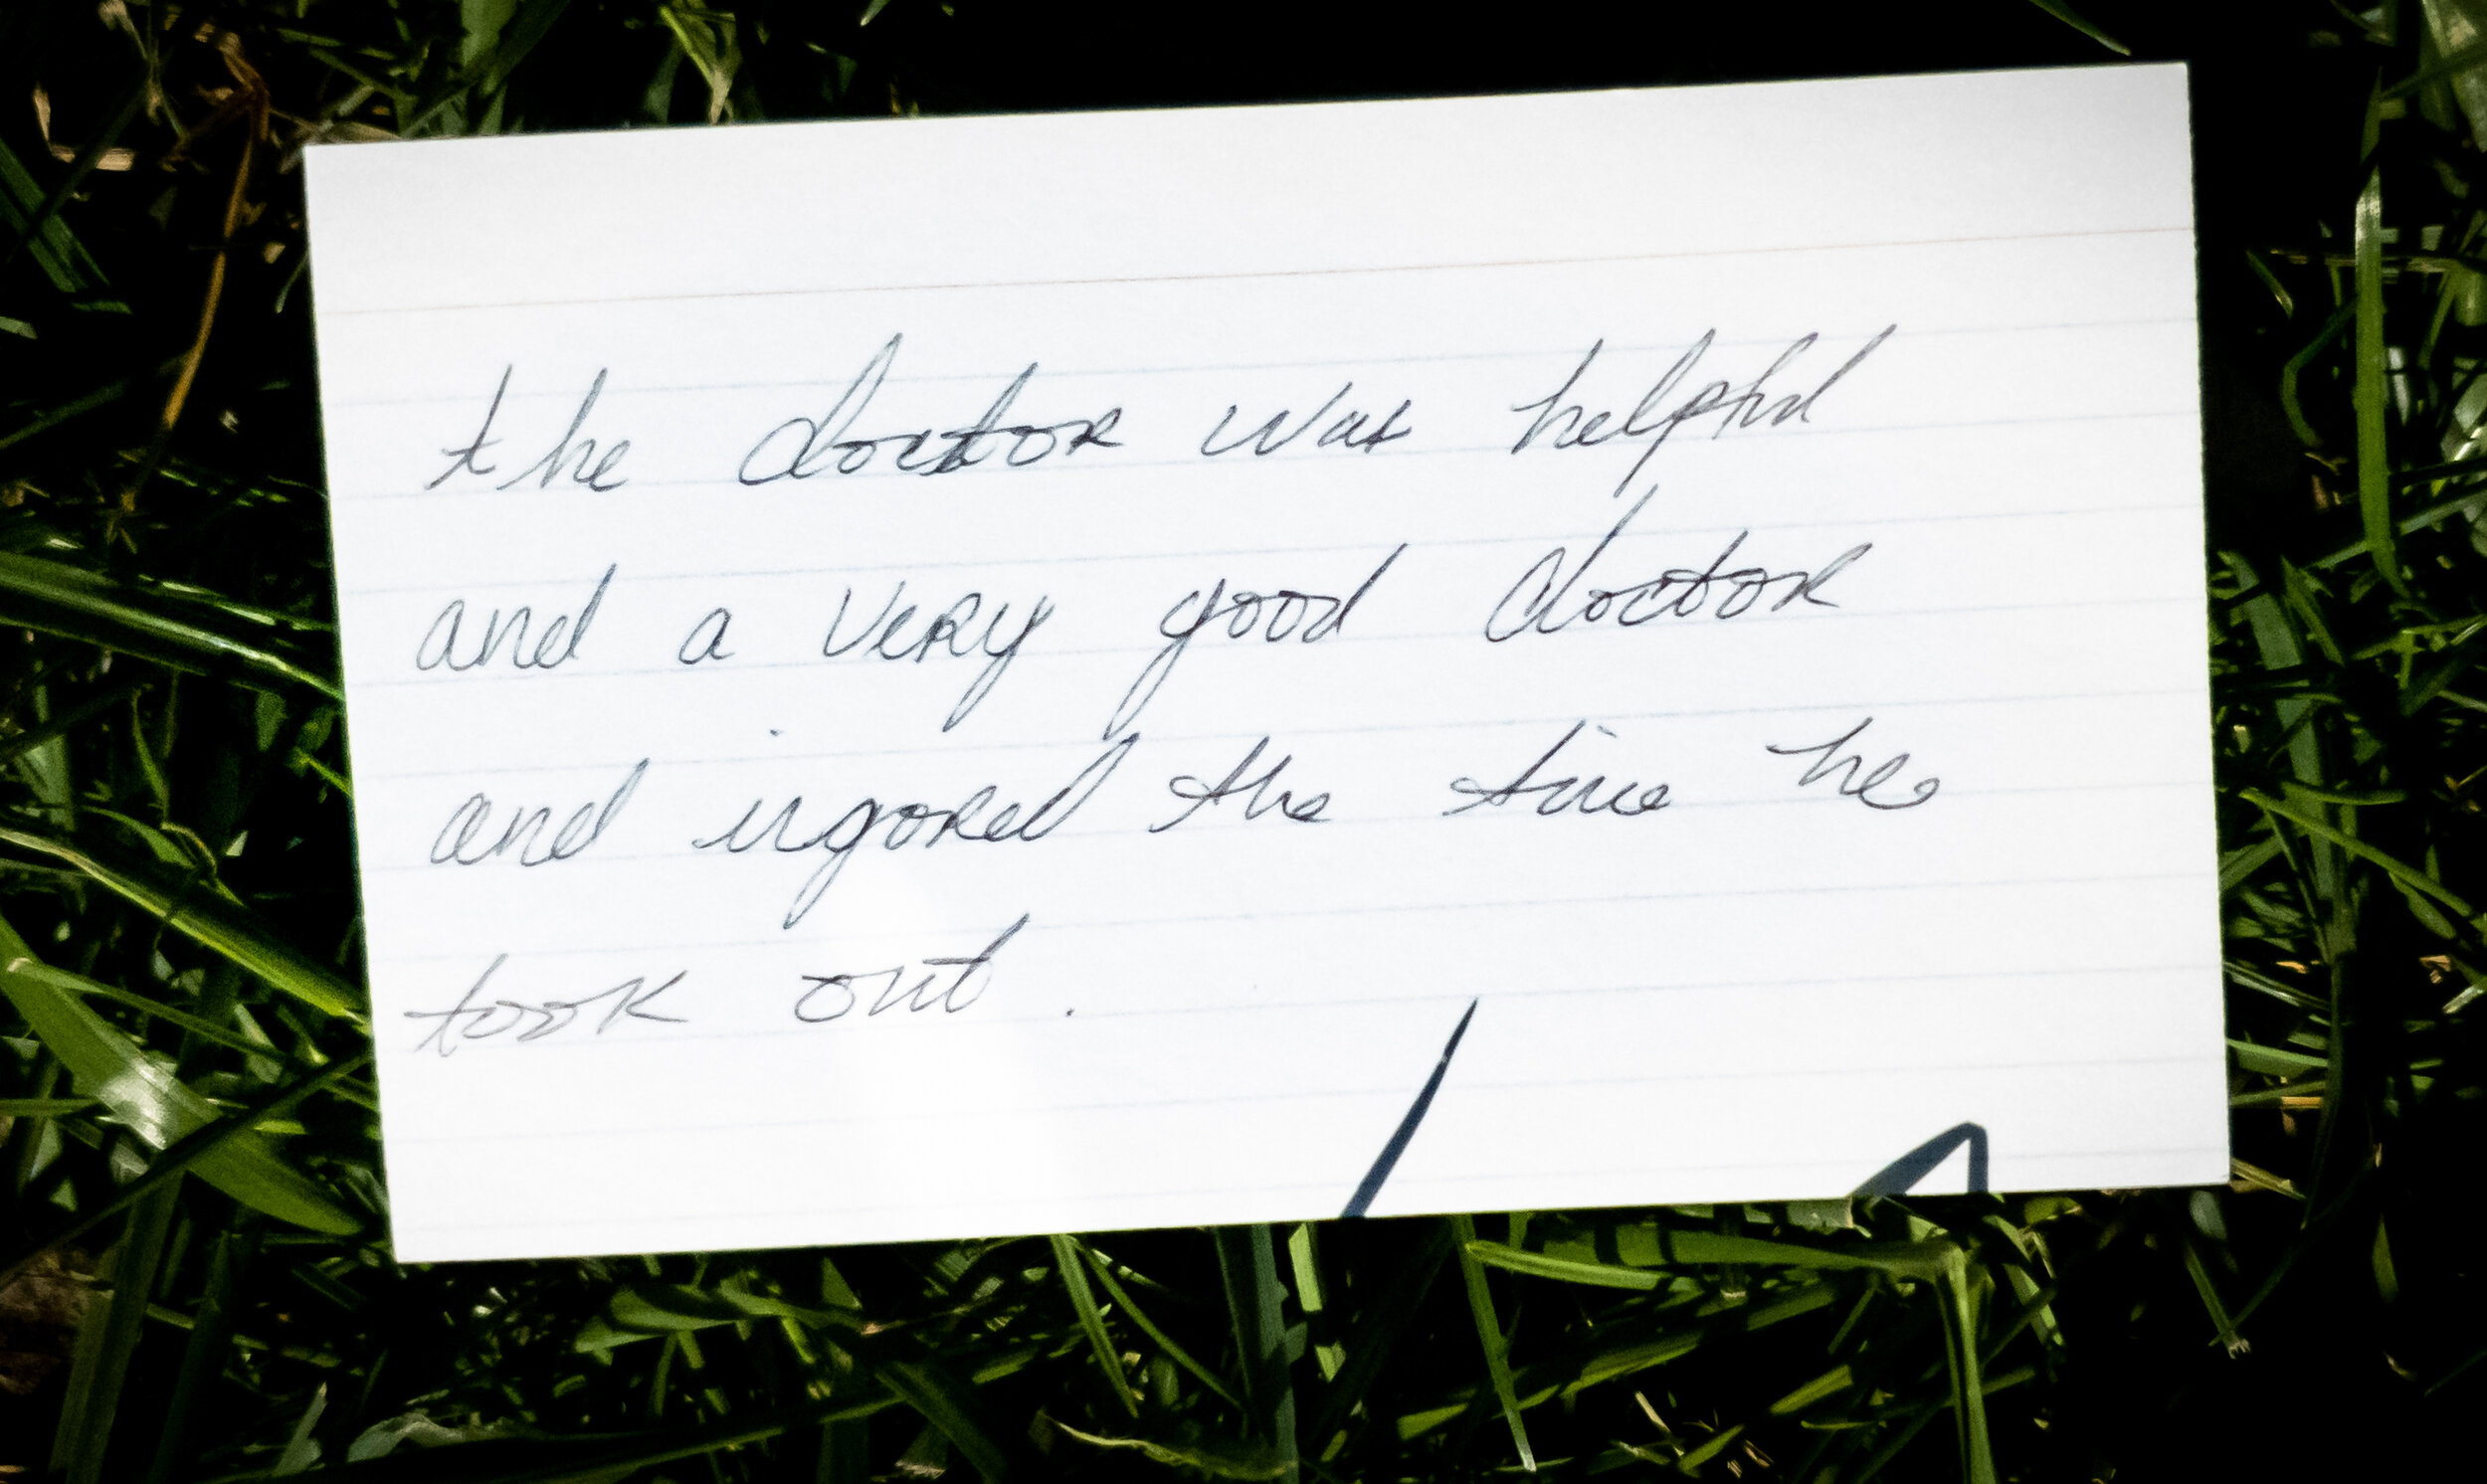 the doctor was helpful
and a very good doctor
and ignored the time he
took out.